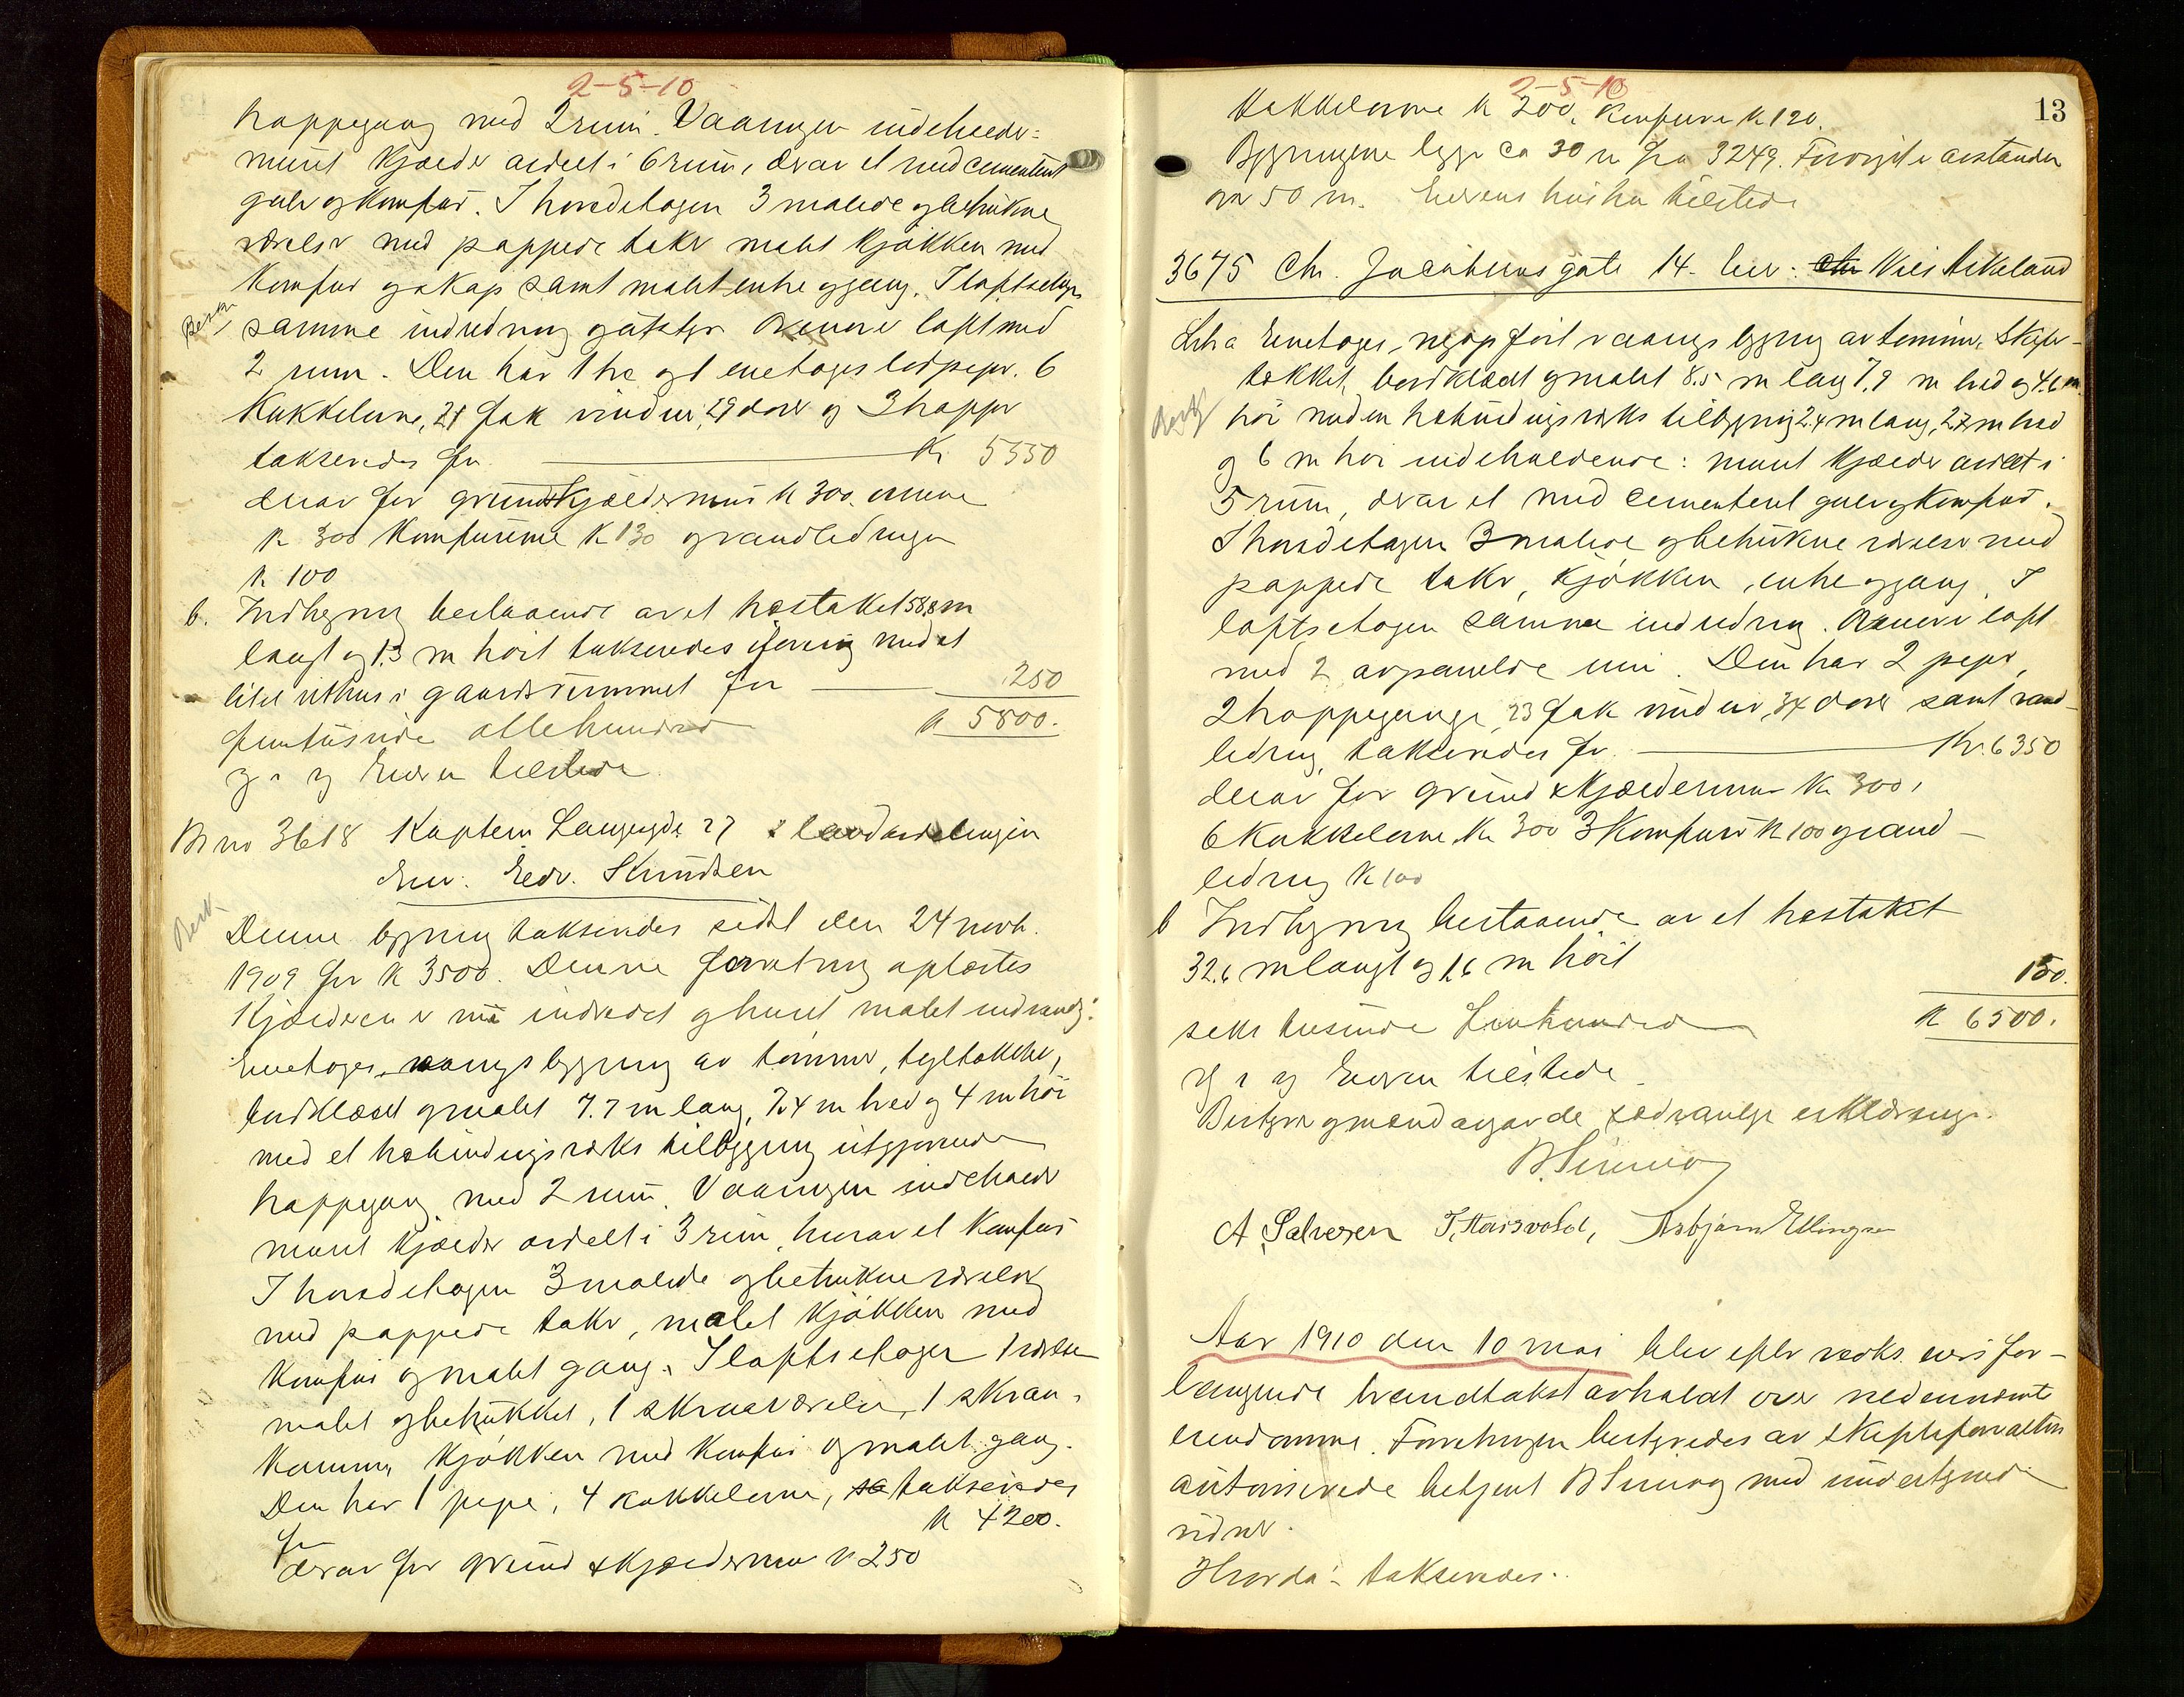 2-5-10
trappegang med 2 rum. Vaaningen indeholder:
muret kjælder avdelt i 6 rum, derav et med cementert
gulv og komfur. I hovedetagen 3 malede og betrukne
værelser med pappede taker malet kjøkken med
komfur og skap samt malet entre og gang. I loftsetagen
Besk
samme indredning og utstyr. Øverst loft med
2 rum. Den har 1 tre og 1 enetages lodpipe. 6
kakkelovne, 21 fak vinduer, 29 dører og 3 trapper
takseredes for Kr 5550
derav for grund & kjældermur k 300. ovnene
k 300 komfurene k 130 og vandledningen
k 100
b. Indhegning bestaaende av et træstaket 58,8 m
langt og 1.3 m høit takseredes iforening med et
litet uthus i gaardsrummet for 250
femtusinde ottehundred k 5800.
Eieren tilstede
Br no 3618 Kaptein Langesgt. 27 i landavdelingen
Eier: Edv. Knudsen
Besk
Denne bygning takseredes sidst den 24 novb.
1909 for k 3500. Denne forretning oplæstes
Kjælderen er nu indredet og huset malet indvendig:
Enetages vaaningsbygning av tømmer, tegltækket,
bordklædt og malet 7.7 m lang, 7.4 m bred og 4 m høi
med et halvindingsverks tilbygning utgjørende
trappegang med 2 rum. Vaaningen indeholder
muret kjælder avdelt i 3 rum, hvorav et komfur
I hovedetagen 3 malede og betrukne værelser
med pappede taker, malet kjøkken med
komfur og malet gang. I loftsetagen 1 værelse
malet og betrukket, 1 skraaværelse, 1 skraa-
kammer, kjøkken med komfur og malet gang.
Den har 1 pipe, 4 kakkelovne, takseredes
for k 4200.
derav for grund & kjældermur k 250
2-5-10
13
kakkelovne k 200, komfurer k 120.
Bygningene ligger ca 30 m fra 3249. Forøvrigt er avstanden
over 50 m. Eierens hustru tilstede
3675 Chr. Jacobsens gate 14. Eier: Nils Birkeland
Litra Enetages, nyopført vaaningsbygning av tømmer, skifer-
tækket, bordklædt og malet 8.5 m lang 7,9 m bred og 4.6 m.
Besk
høi med en halvindingsverks tilbygning 2.4 m lang, 2.7 m bred
og 6 m høi indeholdende: muret kjælder avdelt i
5 rum, derav et med cementeret gulv og komfur.
I hovedetagen 3 malede og betrukne værelser med
pappede taker, kjøkken, entre og gang. I
loftsetagen samme indredning. Øverst loft
med 2 avpanelede rum. Den har 2 piper,
2 trappegange, 23 fak vinduer, 34 dører samt vand-
ledning, takseredes for Kr. 6350
derav for grund & kjældermur k 300,
6 kakkelovne kr 300 3 komfurer k 100 og vand-
ledning k 100
b Indhegning bestaaende av et træstaket
32.6 m langt og 1,6 m høit 150.
seks tusinde femhundred k 6500.
Eieren tilstede.
Bestyrer og mænd avgav de sædvanlige erklæringer.
A. Salvesen Asbjørn Ellingsen
Aar 1910 den 10 mai blev efter vedk. eiers for-
langende brandtakst avholdt over nedennævnte
eiendomme. Forretningen bestyredes av skifteforvalterens
autoriserede betjent med undertegnede
vidner.
Hvorda: takseredes: